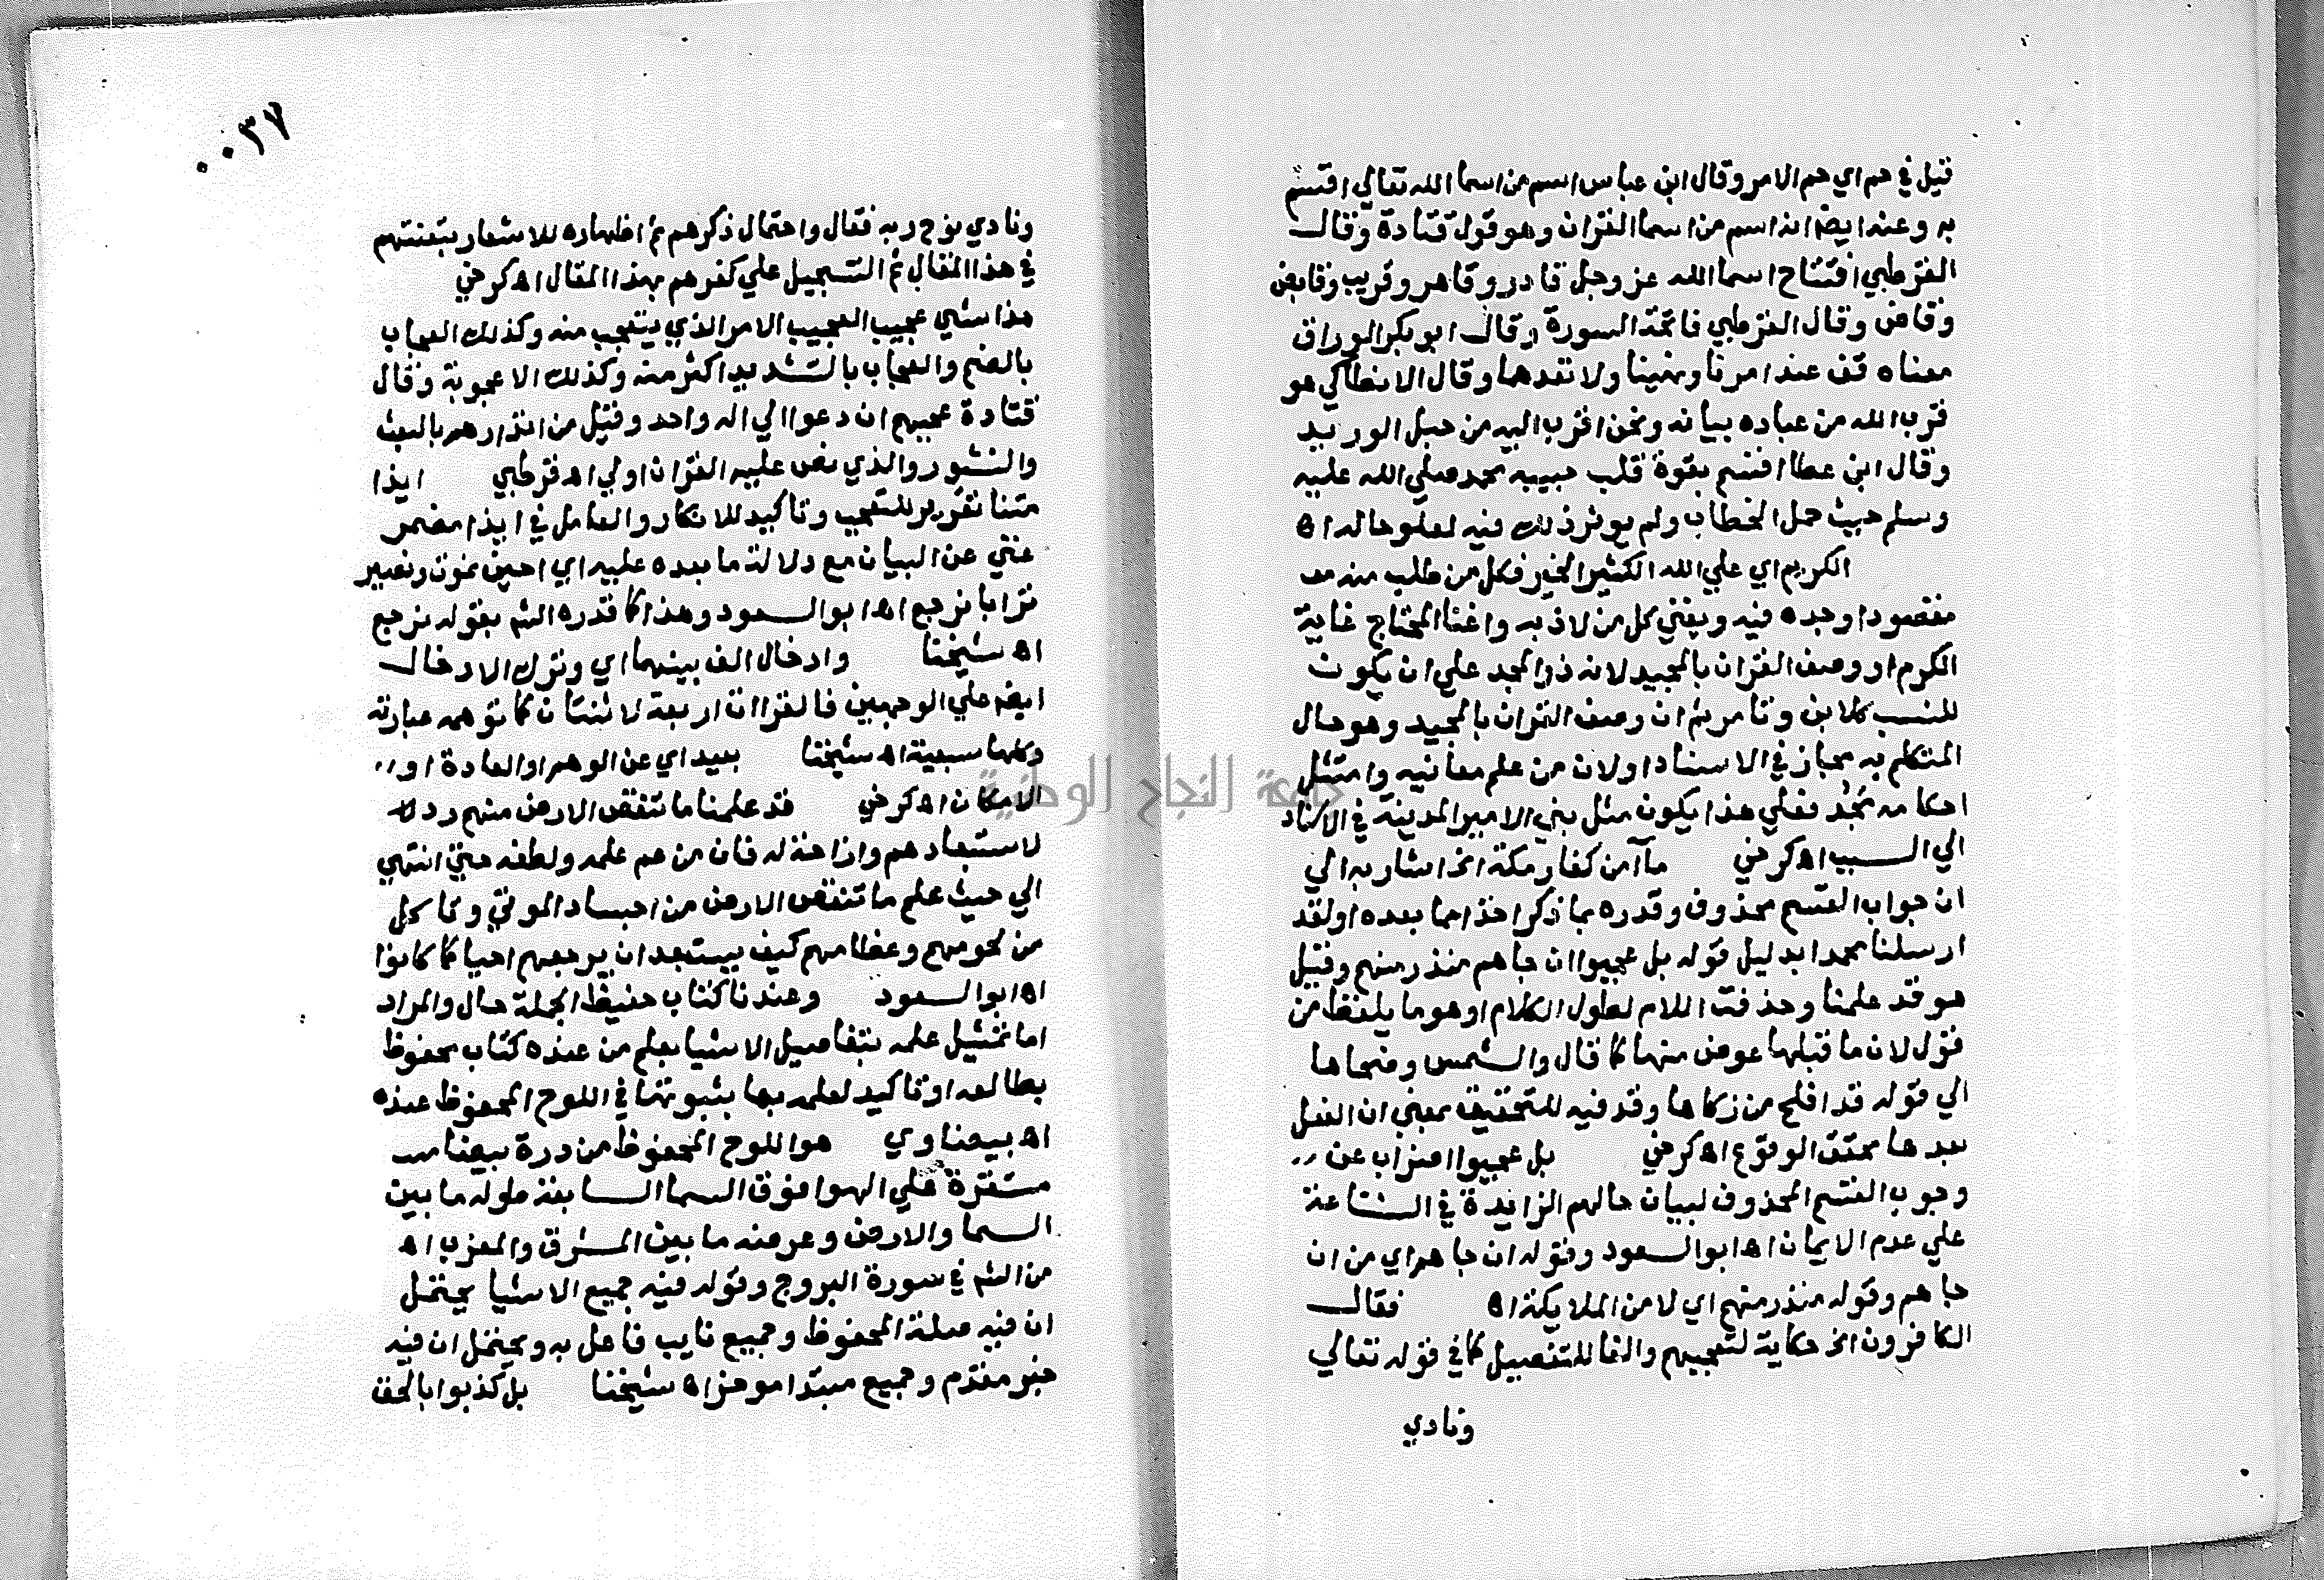 قيل في حم اي حم الامر وقال ابن عباس اسم من اسما الله تعالي اقسم
به وعنه ايضا انه اسم من اسما القران وهو قول قتادة وقال
القرطبي افتتاح اسما الله عز وجل قادر وقاهر وقريب وقابض
وقاض وقال القرطبي فاتحة السورة وقال ابو بكر الوراق
معناه قف عند امرنا ونهينا ولا تعدها وقال الانطاكي هو
قرب الله من عباده بيانه ونحن اقرب اليه من حبل الوريد
وقال ابن عطا اقسم بقوة قلب حبيبه محمد صلي الله عليه
وسلم حيث حمل الخطاب ولم يوثر ذلك فيه لعلو حاله اه
الكريم اي علي الله الكثير الخير فكل من طلب منه
مقصودا وجده فيه ويغني كل من لاذ به واغنا المحتاج غاية
الكرم او وصف القران بالمجيد لانه ذو المجد علي ان يكون
للنسب كلابن وتامر ثم ان وصف القران بالمجيد وهو حال
المتكلم به مجاز في الاسناد او لان من علم معانيه وامتثل
احكامه مجد فعلي هذا يكون مثل بني الامير المدينة في الاسناد
الي السبب اه كرخي ما آمن كفار مكة الخ اشار به الي
ان جواب القسم محذوف وقدره بما ذكر اخذا مما بعده او لقد
ارسلنا محمدا بدليل قوله بل عجبوا ان جاهم منذر منهم وقيل
هو قد علمنا وحذفت اللام لطول الكلام او هو ما يلفظ من
قول لان ما قبلها عوض منها كما قال والشمس وضحاها
الي قوله قد افلح من زكاها وقد فيه للتحقيق بمعني ان الفعل
بعدها محقق الوقوع اه كرخي بل عجبوا اضراب عن
وجوب القسم المحذوف لبيان حالهم الزايدة في الشناعة
علي عدم الايمان اه ابو السعود وقوله ان جاهم اي من ان
جاهم وقوله منذر منهم اي لا من الملايكة اه فقال
الكافرون الخ حكاية لتعجبهم والفا للتفصيل كما في قوله تعالي
ونادي
٠٠٣٧
ونادي نوح ربه فقال واحتمال ذكرهم ثم اظهاره للاشعار بتعنتهم
في هذا المقال ثم التسجيل علي كفرهم بهذا المقال اه كرخي
هذا شي عجيب العجيب الامر الذي يتعجب منه وكذلك العجاب
بالضم والعجاب بالتشديد اكثر منه وكذلك الاعجوبة وقال
قتادة عجبهم ان دعوا الي اله واحد وقيل من انذارهم بالبعث
والنشور والذي نص عليه القران اولي اه قرطبي ايذا
متنا تقرير للتعجب وتاكيد للانكار والعامل في ايذا مضمر
غني عن البيان مع دلالة ما بعده عليه اي احين نموت ونصير
ترابا نرجع اه ابو السعود وهذا كما قدره الشم بقوله نرجع
اه شيخنا وادخال الف بينهما اي وترك الادخال
ايضا علي الوجهين فالقراات اربعة لا ثنتان كما توهمه عبارته
وكلها سبعية اه شيخنا بعيد اي عن الوهم او العادة او
الامكان اه كرخي قد علمنا ما تنقص الارض منهم رد
لاستبعادهم وازاحة له فان من عم علمه ولطفه حتي انتهي
الي حيث علم ما تنقص الارض من اجساد الموتي وتاكل
من لحومهم وعظامهم كيف يستبعد ان يرجعهم احيا كما كانوا
اه ابو السعود وعندنا كتاب حفيظ الجملة حال والمراد
اما تمثيل علمه بتفاصيل الاشيا بعلم من عنده كتاب محفوظ
يطالعه او تاكيد لعلمه بها بثبوتها في اللوح المحفوظ عنده
اه بيضاوي هو اللوح المحفوظ من درة بيضا
مستقرة علي الهوا فوق السما السابعة طوله ما بين
السما والارض وعرضه ما بين المشرق والمغرب اه
من الشم في سورة البروج وقوله فيه جميع الاشيا يحتمل
ان فيه صلة المحفوظ وجميع نايب فاعل به ويحتمل ان فيه
خبر مقدم وجميع مبتدا موخر اه شيخنا بل كذبوا بالحق
جامعة النجاح الوطنية